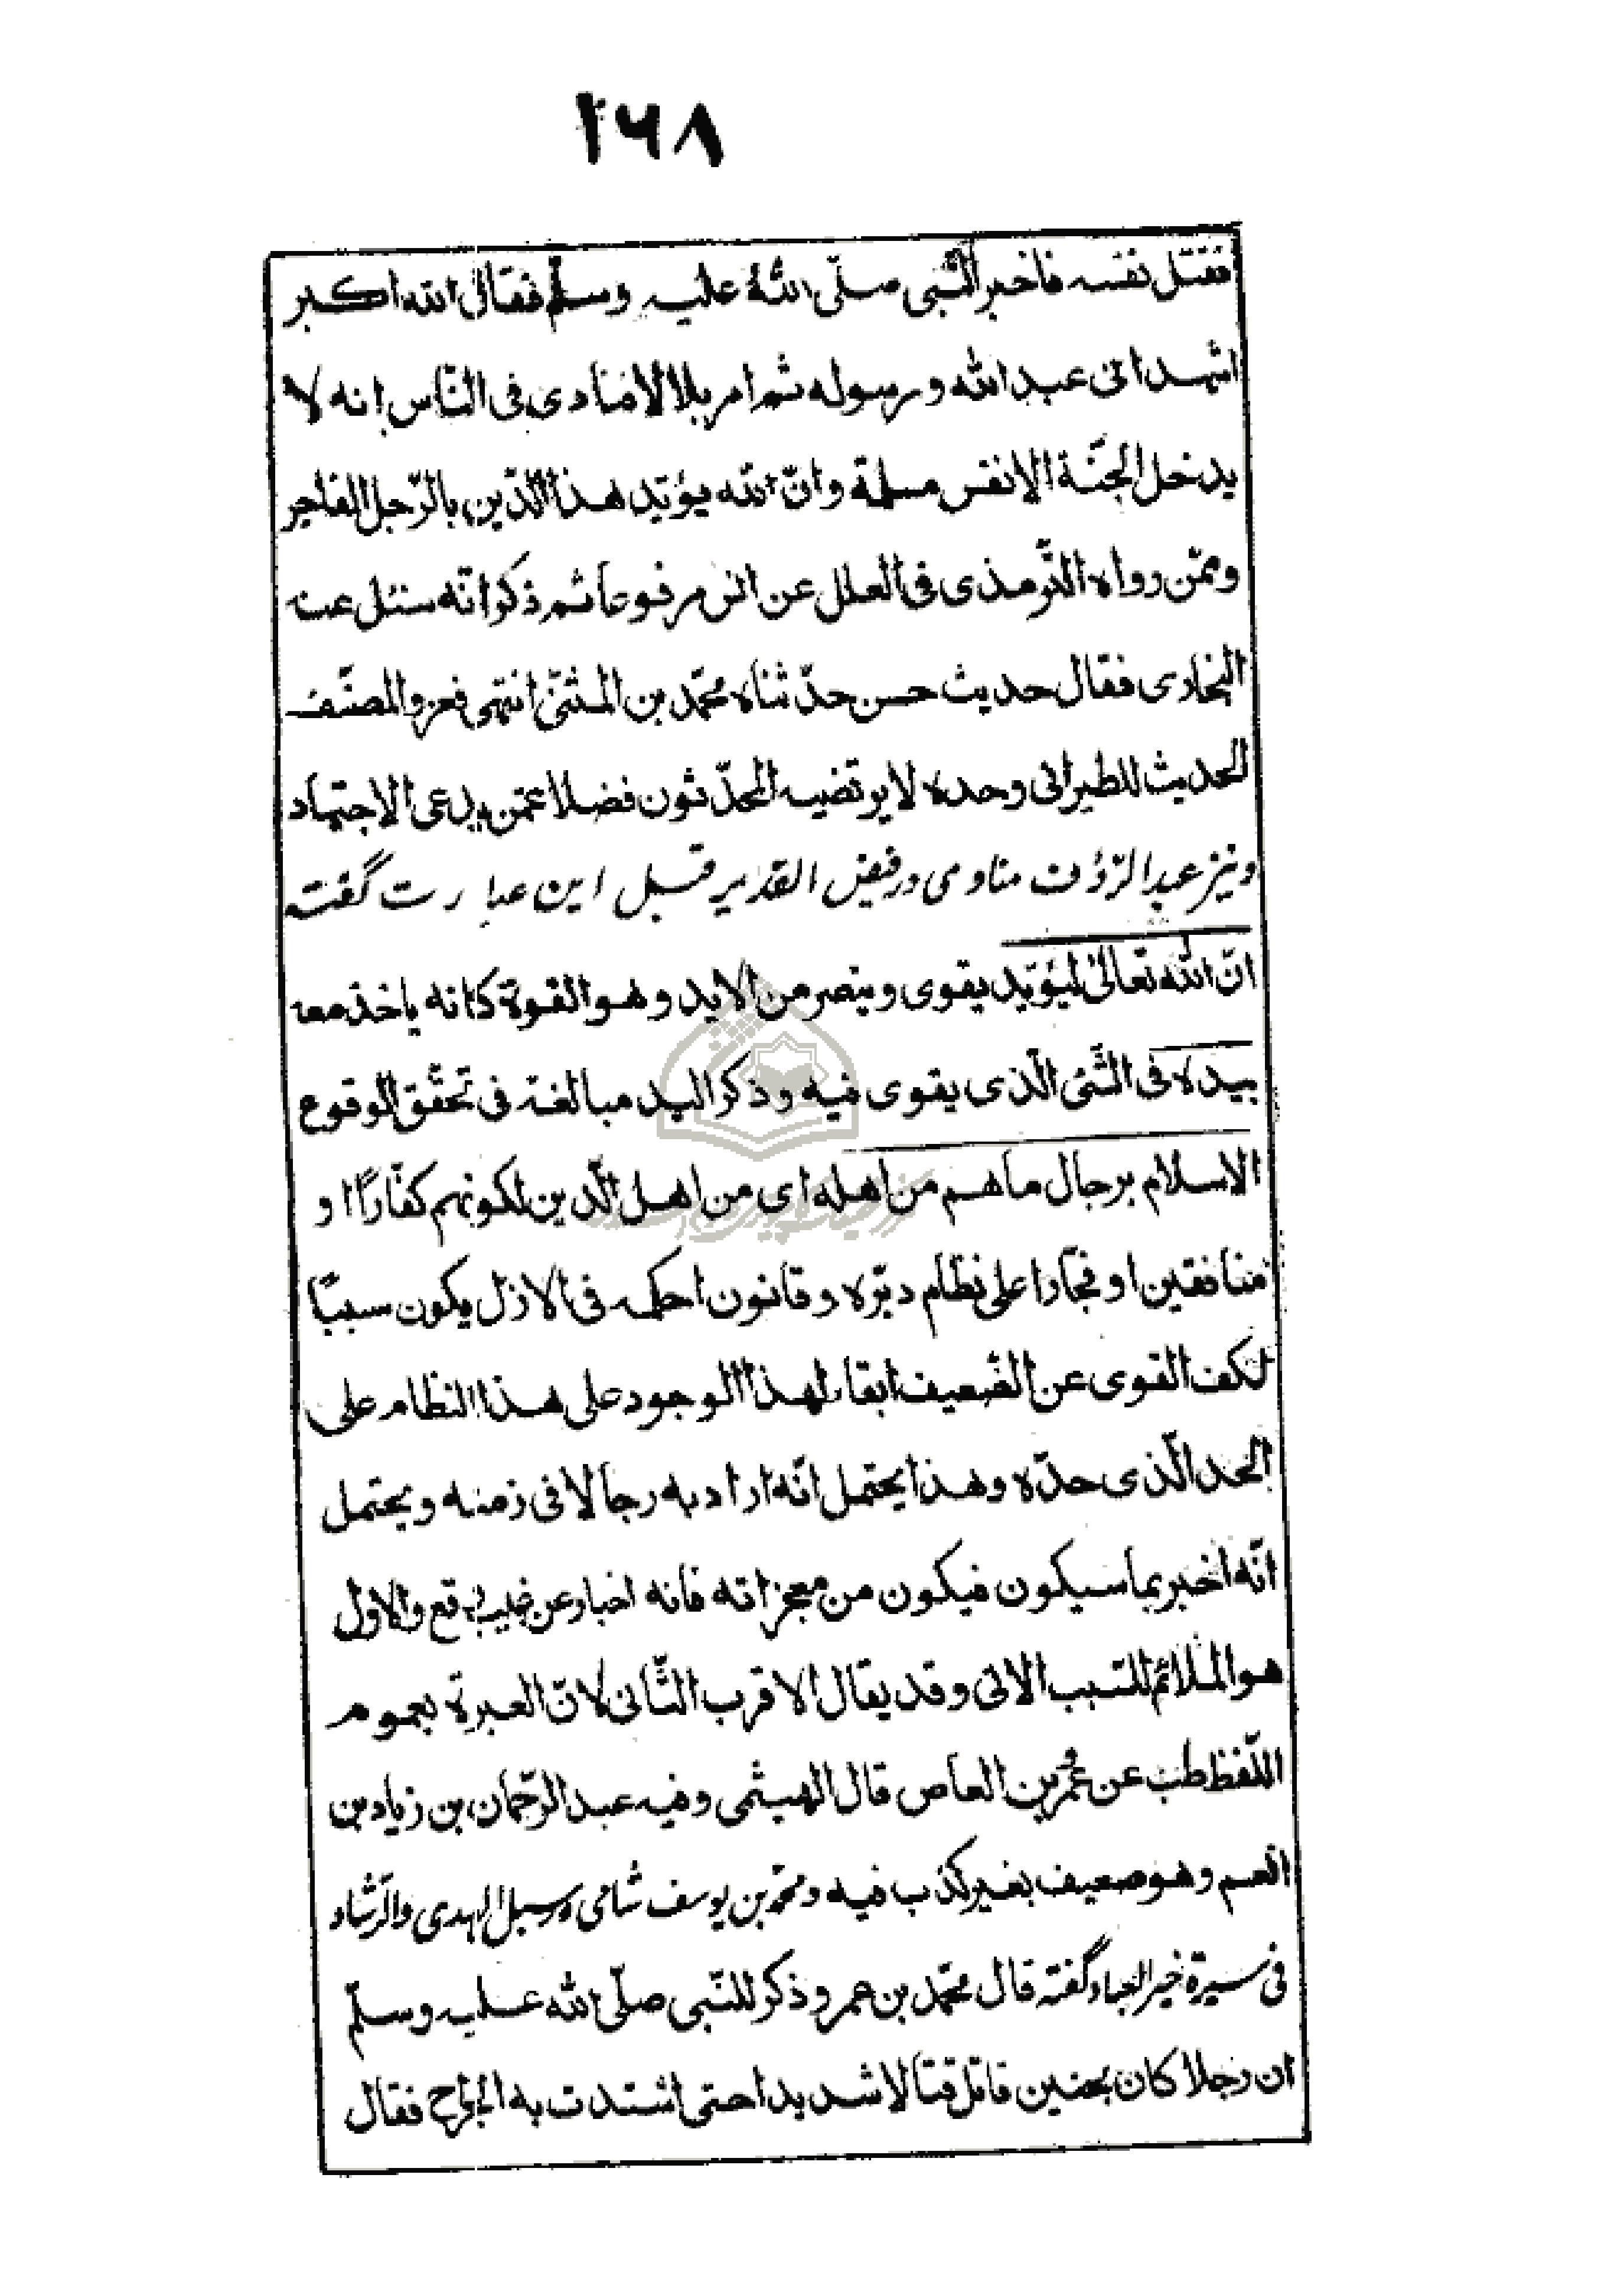 ۱۶۸
فقتل نفسه فاخبر النّبى صلّى اللّه عليه وسلّم فقال اللّه اكبر
اشهد انى عبد اللّه ورسوله ثم امر بلالا فنادى فى النّاس انه لا
يدخل الجنّة الا نفس مسلمة وانّ اللّه يؤيّد هذا الدّين بالرّجل الفاجر
وممّن رواه التّرمذى فى العلل عن انس مرفوعا ثم ذكر انّه سئل عنه
البخارى فقال حديث حسن حدّثناه محمّد بن المثنّى انتهى فعزو المصنّف
الحديث للطبرانى وحده لا يرتضيه المحدّثون فضلا عمّن يدعى الاجتهاد
ونيز عبد الرّؤف مناوى در فيض القدير قبل اين عبارت گفته
انّ اللّه تعالى ليؤيّد يقوى وينصر من الايد وهو القوة كانه ياخذ معه
بيده فى الشّئ الّذى يقوى فيه وذكر اليد مبالغة فى تحقّق الوقوع
الاسلام برجال ما هم من اهله اى من اهل الّدين لكونهم كفّارًا او
منافقين او فجّارا على نظام دبّره وقانون احكمه فى الازل يكون سببًا
لكف القوى عن الضّعيف ابقاء لهذا الوجود على هذا النظام على
الحد الّذى حدّه وهذا يحتمل انّه اراد به رجالا فى زمنه ويحتمل
انّه اخبر بما سيكون فيكون من معجزاته فانه اخبار عن غيب وقع والاول
هو الملائم للسّبب الاتى وقد يقال الاقرب الثّانى لانّ العبرة بعموم
اللّفظ طب عن عمرو بن العاص قال الهيثمى وفيه عبد الرّحمان بن زياد بن
انعم وهو ضعيف بغير كذب فيه ومحمّد بن يوسف شامى در سبل الهدى والرّشاد
فى سيرة خير العباد گفته قال محمّد بن عمر وذكر للنّبى صلّى اللّه عليه وسلّم
ان رجلا كان بحنين قاتل قتالا شديدا حتى اشتدت به الجراح فقال